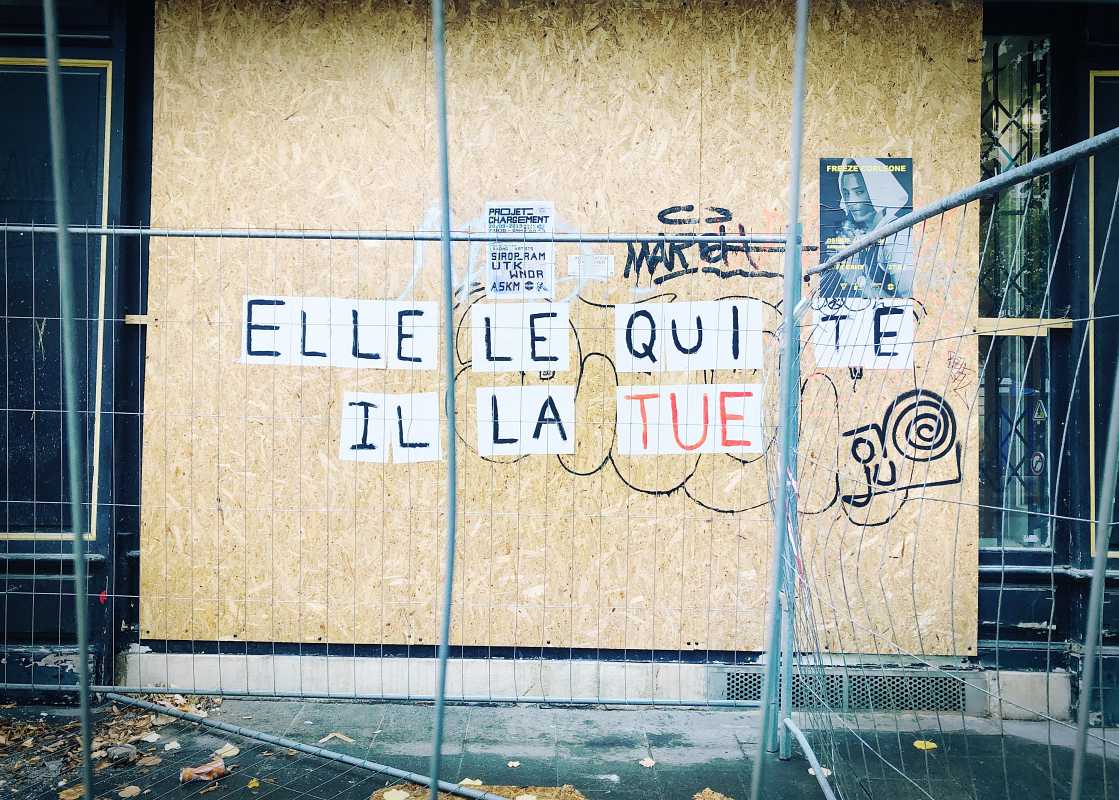 PROJET
CHARGEMENT
SIROP RAM
UTK
WNDR
ASKM
FREEZE CORLEONE
ELLE LE QUI TE
IL LA TUE